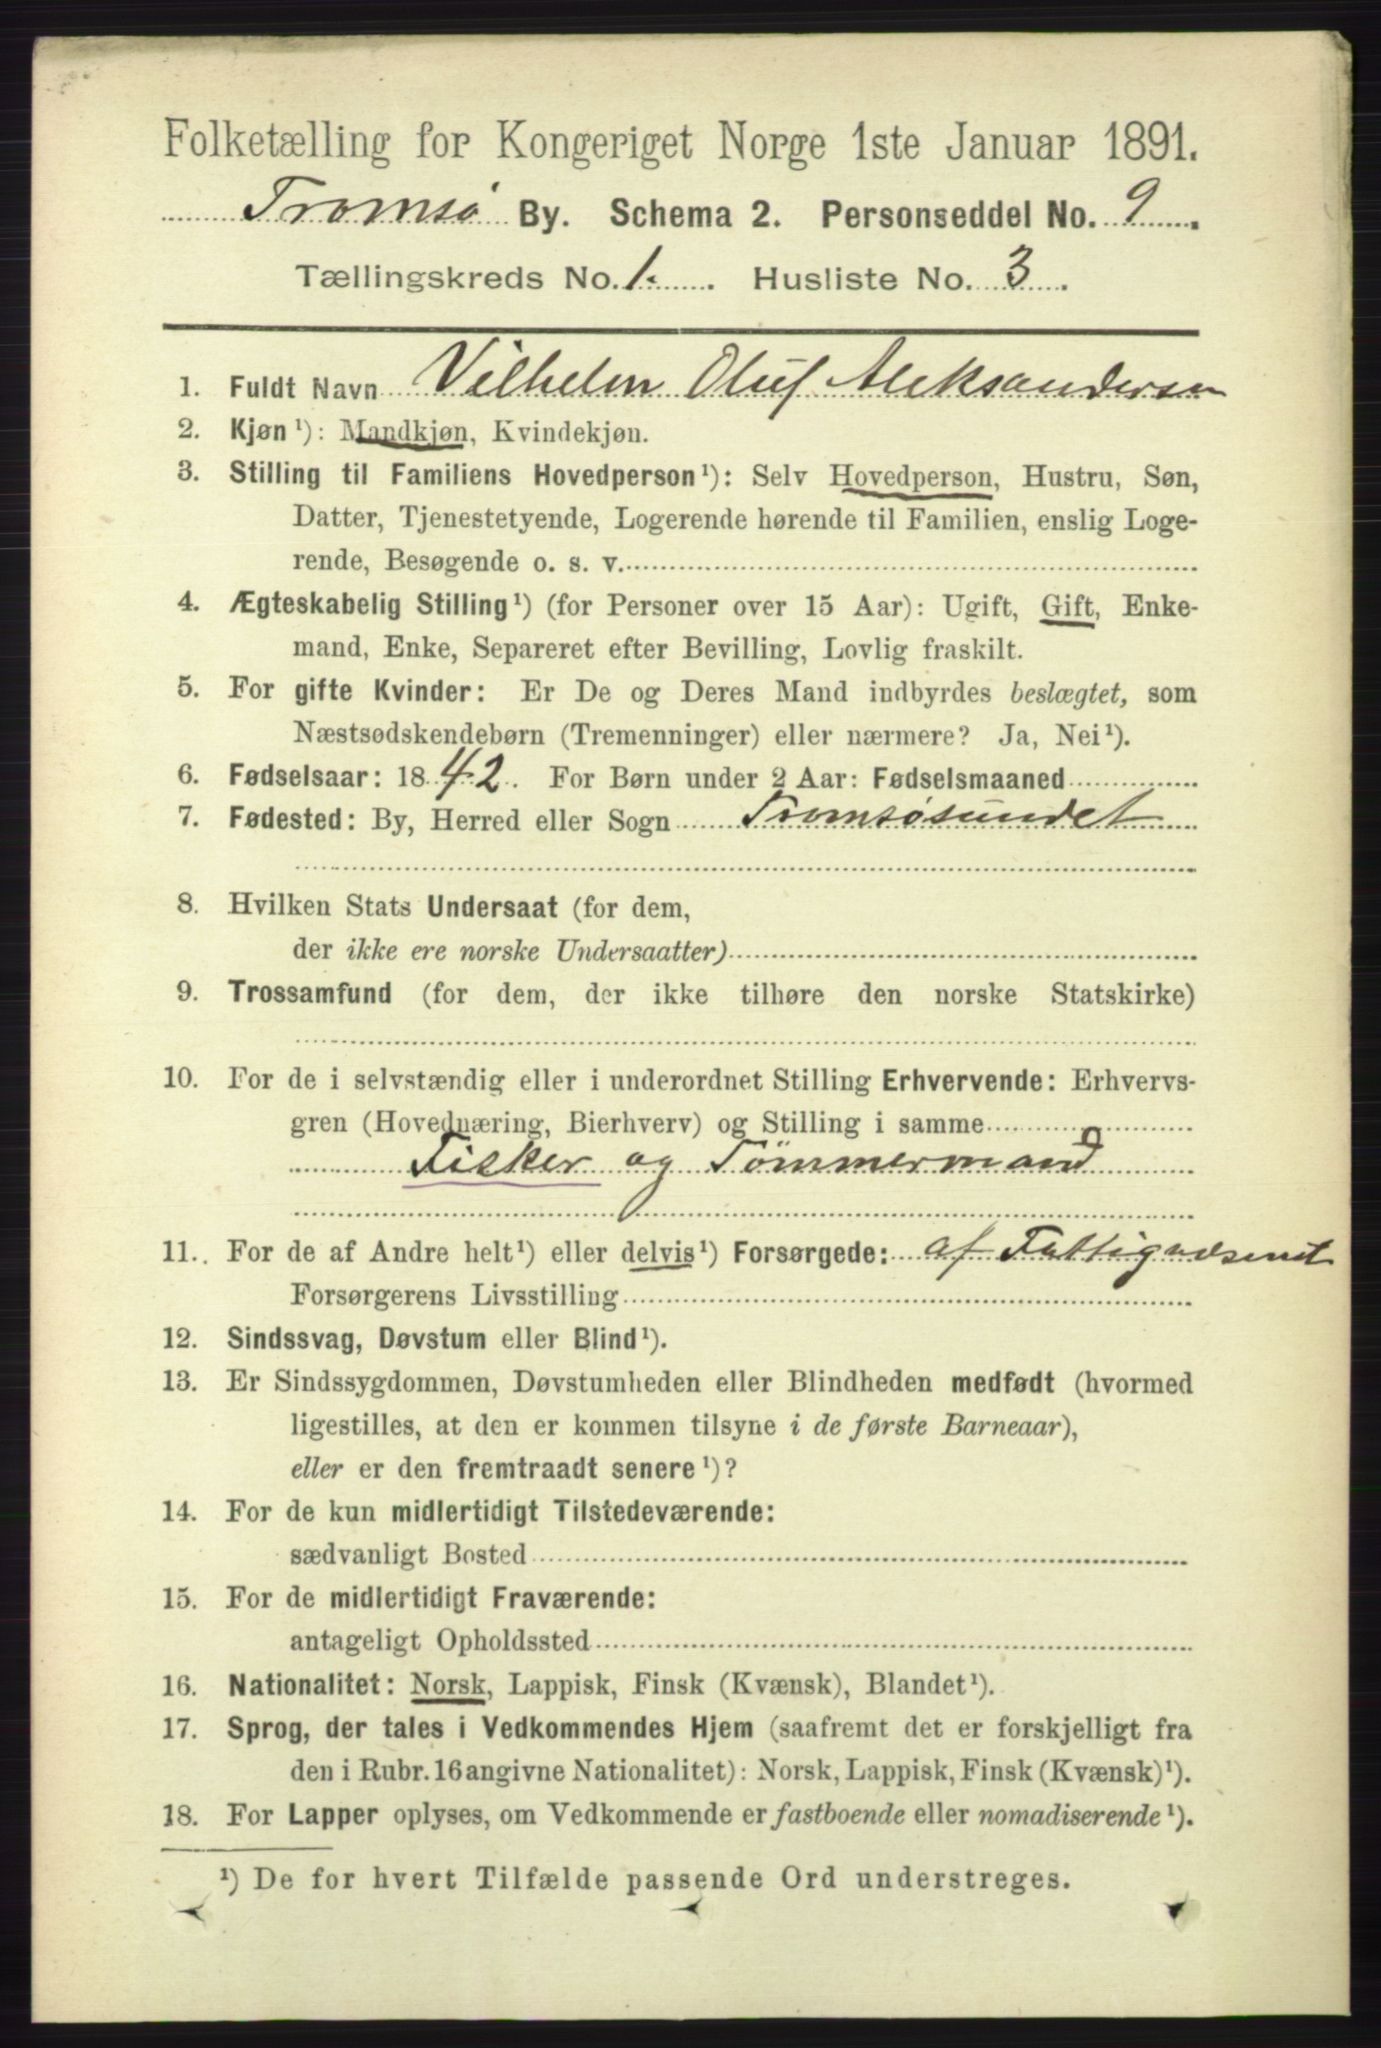 Folketælling for Kongeriget Norge 1ste Januar 1891.
Tromsø By. Schema 2. Personseddel No. 9.
Tællingskreds No. 1. Husliste No. 3.
1. Fuldt Navn Vilhelm Oluf Aleksandersen
2. Kjøn¹): Mandkjøn, Kvindekjøn.
3. Stilling til Familiens Hovedperson¹): Selv Hovedperson, Hustru, Søn,
Datter, Tjenestetyende, Logerende hørende til Familien, enslig Loge-
rende, Besøgende o. s. v.
4. Ægteskabelig Stilling¹) (for Personer over 15 Aar): Ugift, Gift, Enke-
mand, Enke, Separeret efter Bevilling, Lovlig fraskilt.
5. For gifte Kvinder: Er De og Deres Mand indbyrdes beslægtet, som
Næstsødskendebørn (Tremenninger) eller nærmere? Ja, Nei¹).
6. Fødselsaar: 1842. For Børn under 2 Aar: Fødselsmaaned
7. Fødested: By, Herred eller Sogn Tromsøsundet
8. Hvilken Stats Undersaat (for dem,
der ikke ere norske Undersaatter)
9. Trossamfund (for dem, der ikke tilhøre den norske Statskirke)
10. For de i selvstændig eller i underordnet Stilling Erhvervende: Erhvervs-
gren (Hovednæring, Bierhverv) og Stilling i samme
Fisker og Tömmermand
11. For de af Andre helt¹) eller delvis¹) Forsørgede: af Fattigvæsenet
Forsørgerens Livsstilling
12. Sindssvag, Døvstum eller Blind¹).
13. Er Sindssygdommen, Døvstumheden eller Blindheden medfødt (hvormed
ligestilles, at den er kommen tilsyne i de første Barneaar),
eller er den fremtraadt senere¹)?
14. For de kun midlertidigt Tilstedeværende:
sædvanligt Bosted
15. For de midlertidigt Fraværende:
antageligt Opholdssted
16. Nationalitet: Norsk, Lappisk, Finsk (Kvænsk), Blandet¹).
17. Sprog, der tales i Vedkommendes Hjem (saafremt det er forskjelligt fra
den i Rubr. 16 angivne Nationalitet): Norsk, Lappisk, Finsk (Kvænsk)¹).
18. For Lapper oplyses, om Vedkommende er fastboende eller nomadiserende¹).
¹) De for hvert Tilfælde passende Ord understreges.